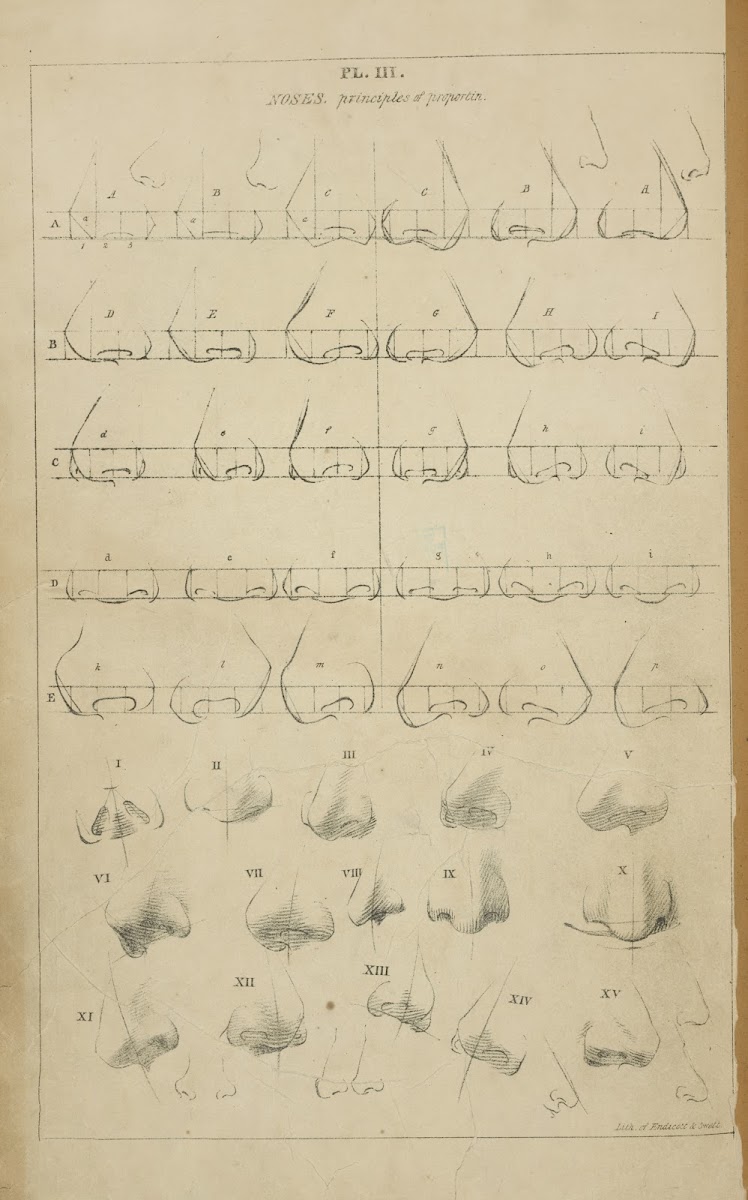 PL. III.
NOSES. principles of proportin.
A B C C B A
A a a c
1 2 3
D E F G H I
B
d e f g h i
C
d e f g h i
D
k l m n o p
E
I II III IV V
VI VII VIII IX X
XI XII XIII XIV XV
Lith. of Endicott & Swett